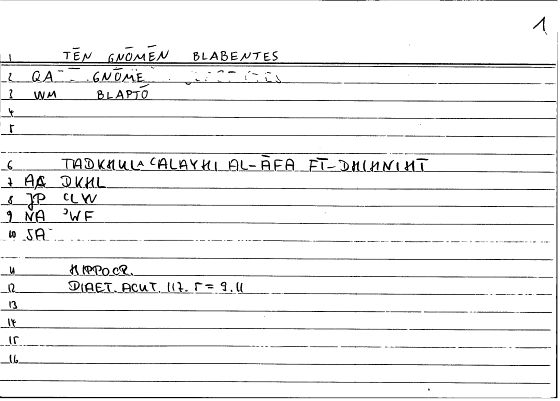 1
1 TĒN GNŌMĒN BLABENTES
2 QA GNŌME
3 WM BLAPTŌ
4
5
6 TADKHULᴬ ʿALAYHI AL-ĀFA FĪ-DHIHNIHĪ
7 AA DKHL
8 JP ʿLW
9 NA ʾWF
10 JA
11 HIPPOCR.
12 DIAET. ACUT. 117. 5 = 9.11
13
14
15
16